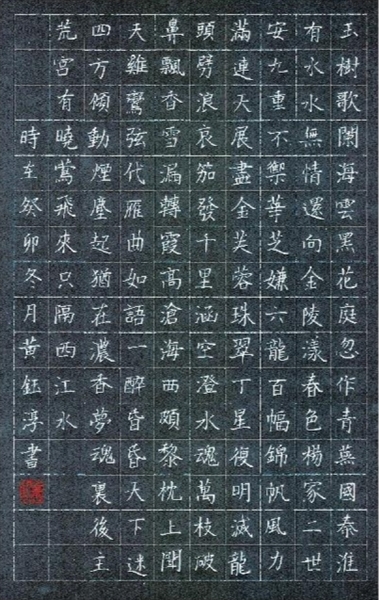 玉樹歌闌海雲黑花庭忽作青蕪國秦淮
有水水無情還向金陵漾春色楊家二世
安九重不禦華芝嫌六龍百幅錦帆風力
滿連天展盡金芙蓉珠翠丁星復明滅龍
頭劈浪哀笳發千里涵空澄水魂萬枝破
鼻飄香雪漏轉霞高滄海西頗黎枕上聞
天雞鸞弦代雁曲如語一醉昏昏天下迷
四方傾動煙塵起猶在濃香夢魂裏後主
荒宮有曉鶯飛來只隔西江水
時在癸卯冬月黃鈺淳書